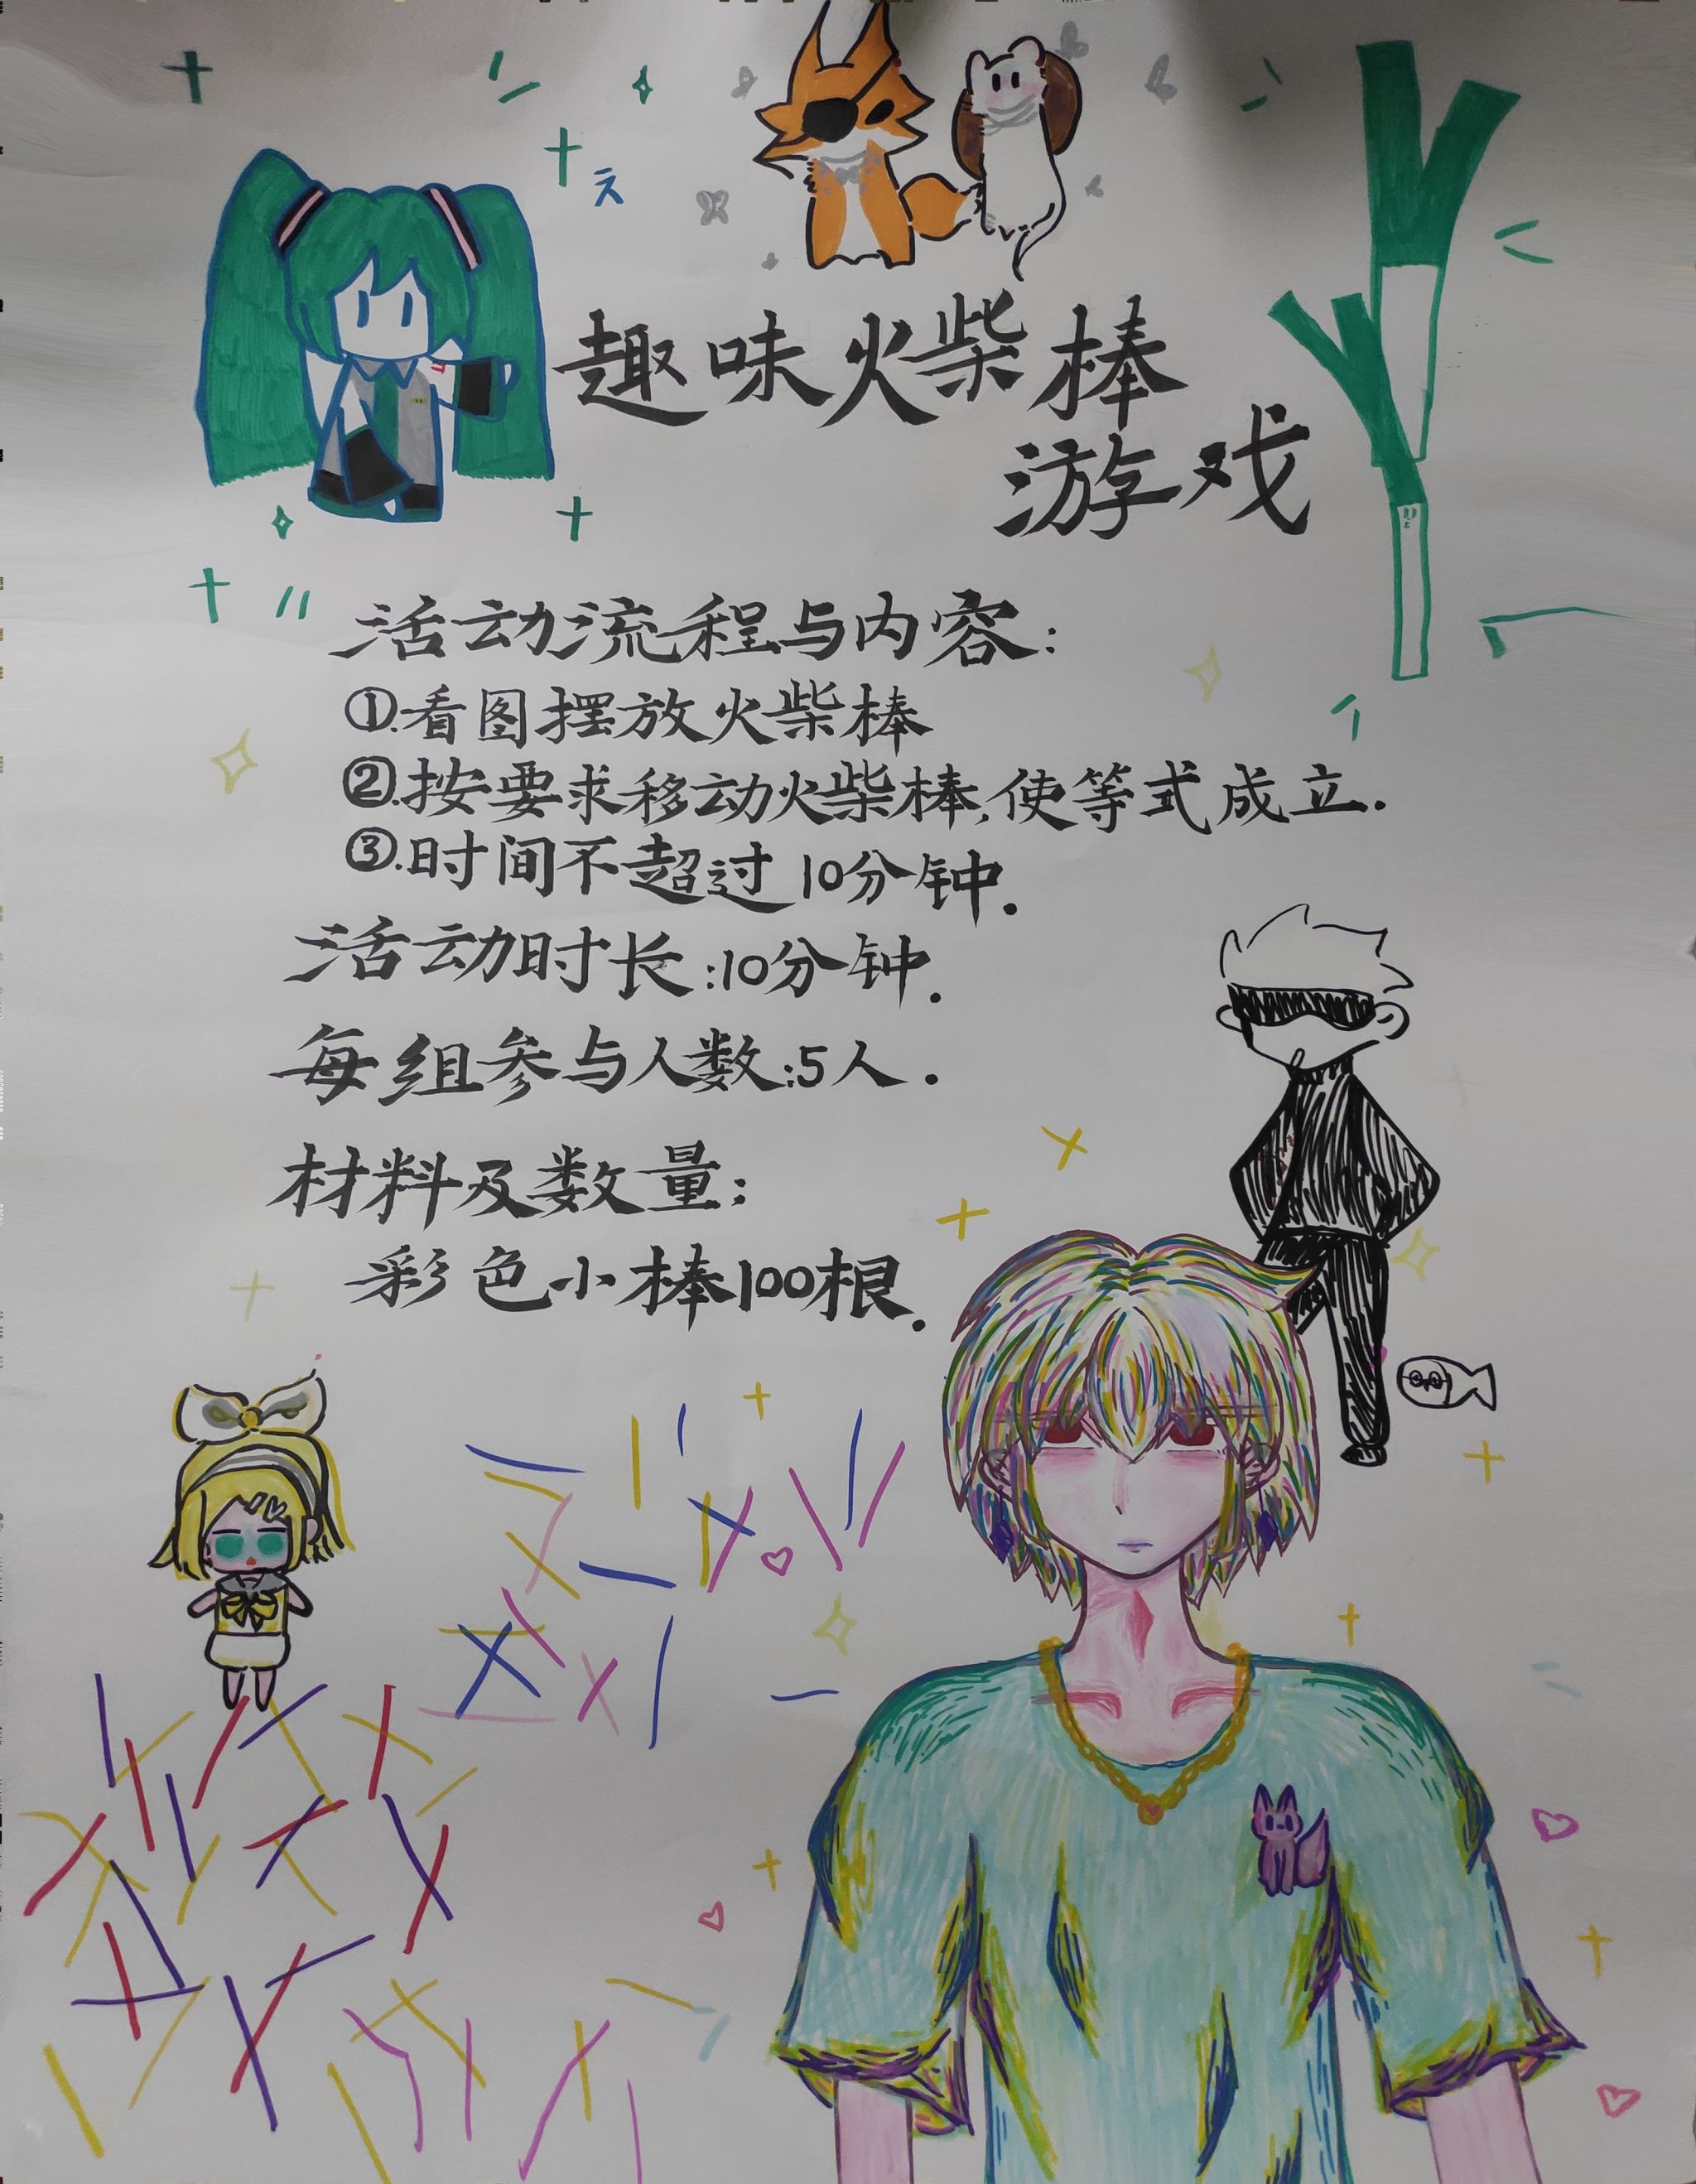 趣味火柴棒
游戏
活动流程与内容:
①.看图摆放火柴棒
②.按要求移动火柴棒,使等式成立.
③.时间不超过10分钟.
活动时长:10分钟.
每组参与人数:5人.
材料及数量:
彩色小棒100根.